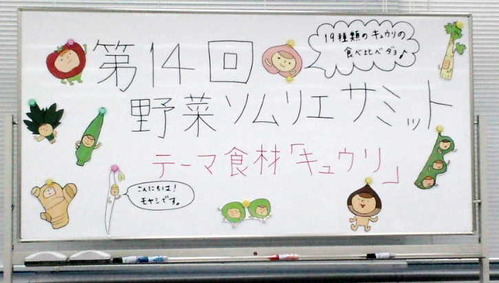 第14回
19種類のキュウリの
食べ比べダヨ♪
野菜ソムリエサミット
テーマ食材「キュウリ」
こんにちは!
モヤシです。